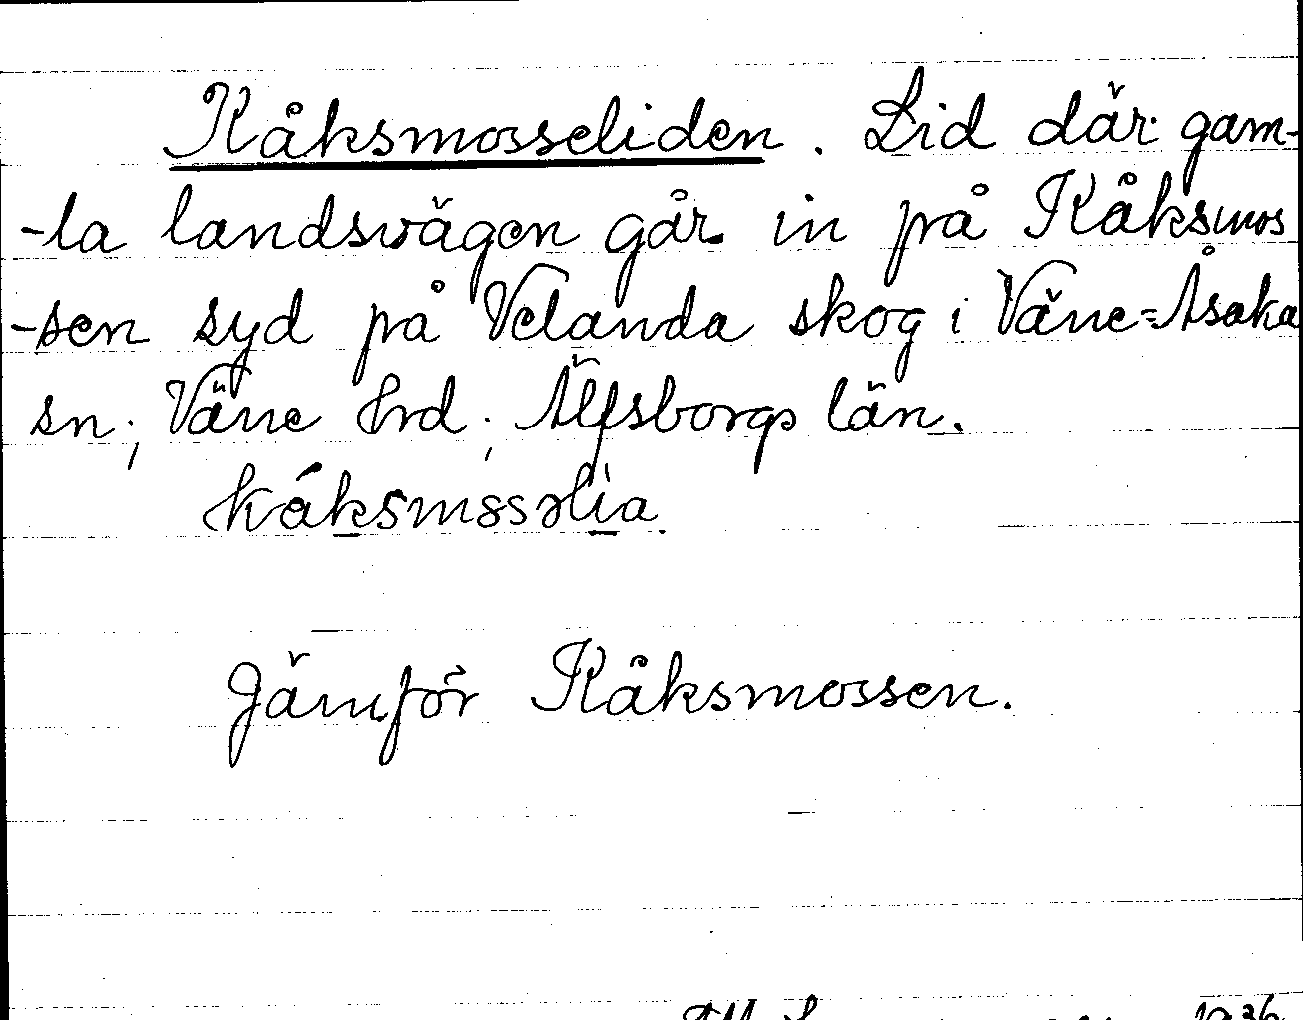 Kåksmosseliden. Lid där gam-
-la landsvägen går in på Kåksmos
-sen syd på Velanda skog i Väne-Åsaka
sn; Väne Hrd; Älfsborgs län.
Jämför Kåksmossen.
1936